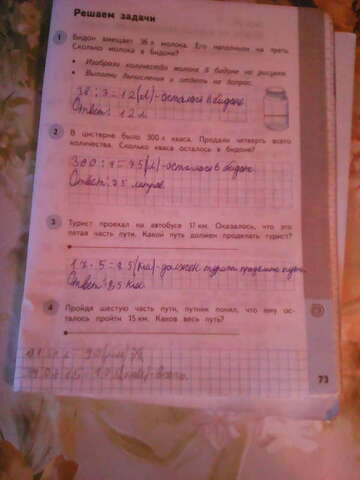 Решаем задачи
1 Бидон вмещает 36 л молока. Его наполнили на треть.
Сколько молока в бидоне?
• Изобрази количество молока в бидоне на рисунке.
• Выполни вычисления и ответь на вопрос.
36 : 3 = 12 (л) - осталось в бидоне
Ответ: 12 л.
2 В цистерне было 300 л кваса. Продали четверть всего
количества. Сколько кваса осталось в бидоне?
300 : 4 = 75 (л) - осталось в бидоне
Ответ: 75 литров.
3 Турист проехал на автобусе 17 км. Оказалось, что это
пятая часть пути. Какой путь должен проделать турист?
17 · 5 = 85 (км) - должен турист проделать путь
Ответ: 85 км.
4 Пройдя шестую часть пути, путник понял, что ему ос-
талось пройти 15 км. Каков весь путь?
73